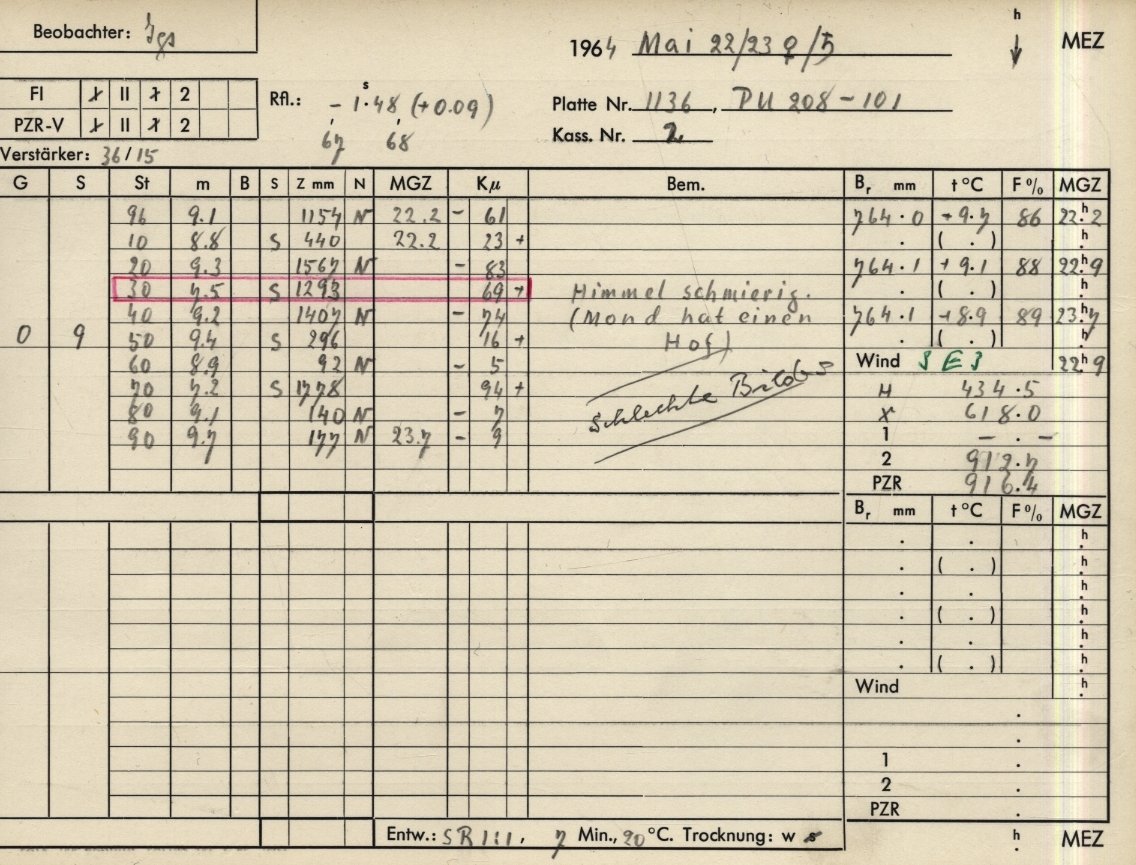 Beobachter: Jgs
1964 Mai 22/23 ♀/5 h ↓ MEZ
FI 1 II 1 2
PZR-V 1 II 1 2
Rfl.: - 1.48 s (+0.09)
67 68
Platte Nr. 1136, PU 208-101
Kass. Nr. 2
Verstärker: 36/15
G S St m B S Z mm N MGZ Kμ Bem. Br mm t °C F % MGZ
96 9.1 1154 N 22.2 - 61 764.0 +9.7 86 22h.2
10 8.8 S 440 22.2 23 + . ( . ) h.
20 9.3 1567 N - 83 764.1 +9.1 88 22h.9
30 7.5 S 1293 69 + Himmel schmierig. . ( . ) h.
40 9.2 1407 N - 74 (Mond hat einen 764.1 +8.9 89 23h.7
0 9 50 9.4 S 296 16 + Hof) . ( . ) h.
60 8.9 92 N - 5 Wind S E 3 22h.9
70 7.2 S 1778 94 + schlechte Bilder H 434.5
80 9.1 140 N - 7 X 618.0
90 9.7 177 N 23.7 - 9 1 - . -
2 912.7
PZR 916.4
Br mm t °C F % MGZ
. . h.
. ( . ) h.
. . h.
. ( . ) h.
. . h.
. ( . ) h.
Wind h.
.
.
1 .
2 .
PZR .
Entw.: SR III, 7 Min., 20 °C. Trocknung: w s h. MEZ